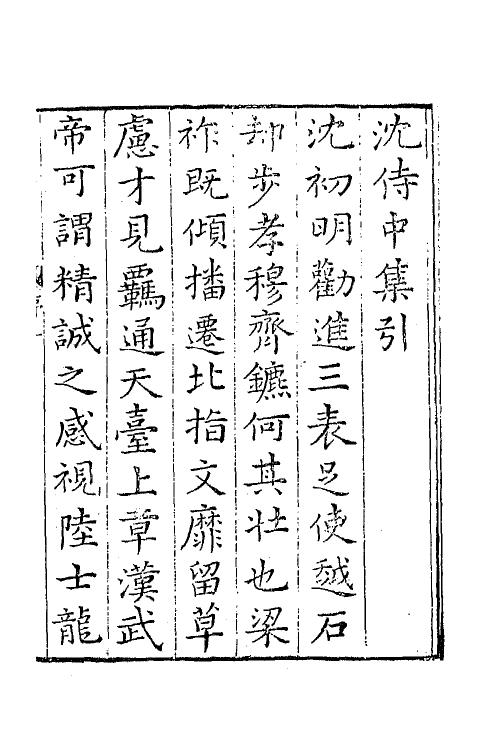 沈侍中集引
沈初明勸進三表足使越石
却步孝穆齊鑣何其壯也梁
祚既傾播遷北指文靡留草
慮才見羈通天臺上草漢武
帝可謂精誠之感視陸士龍